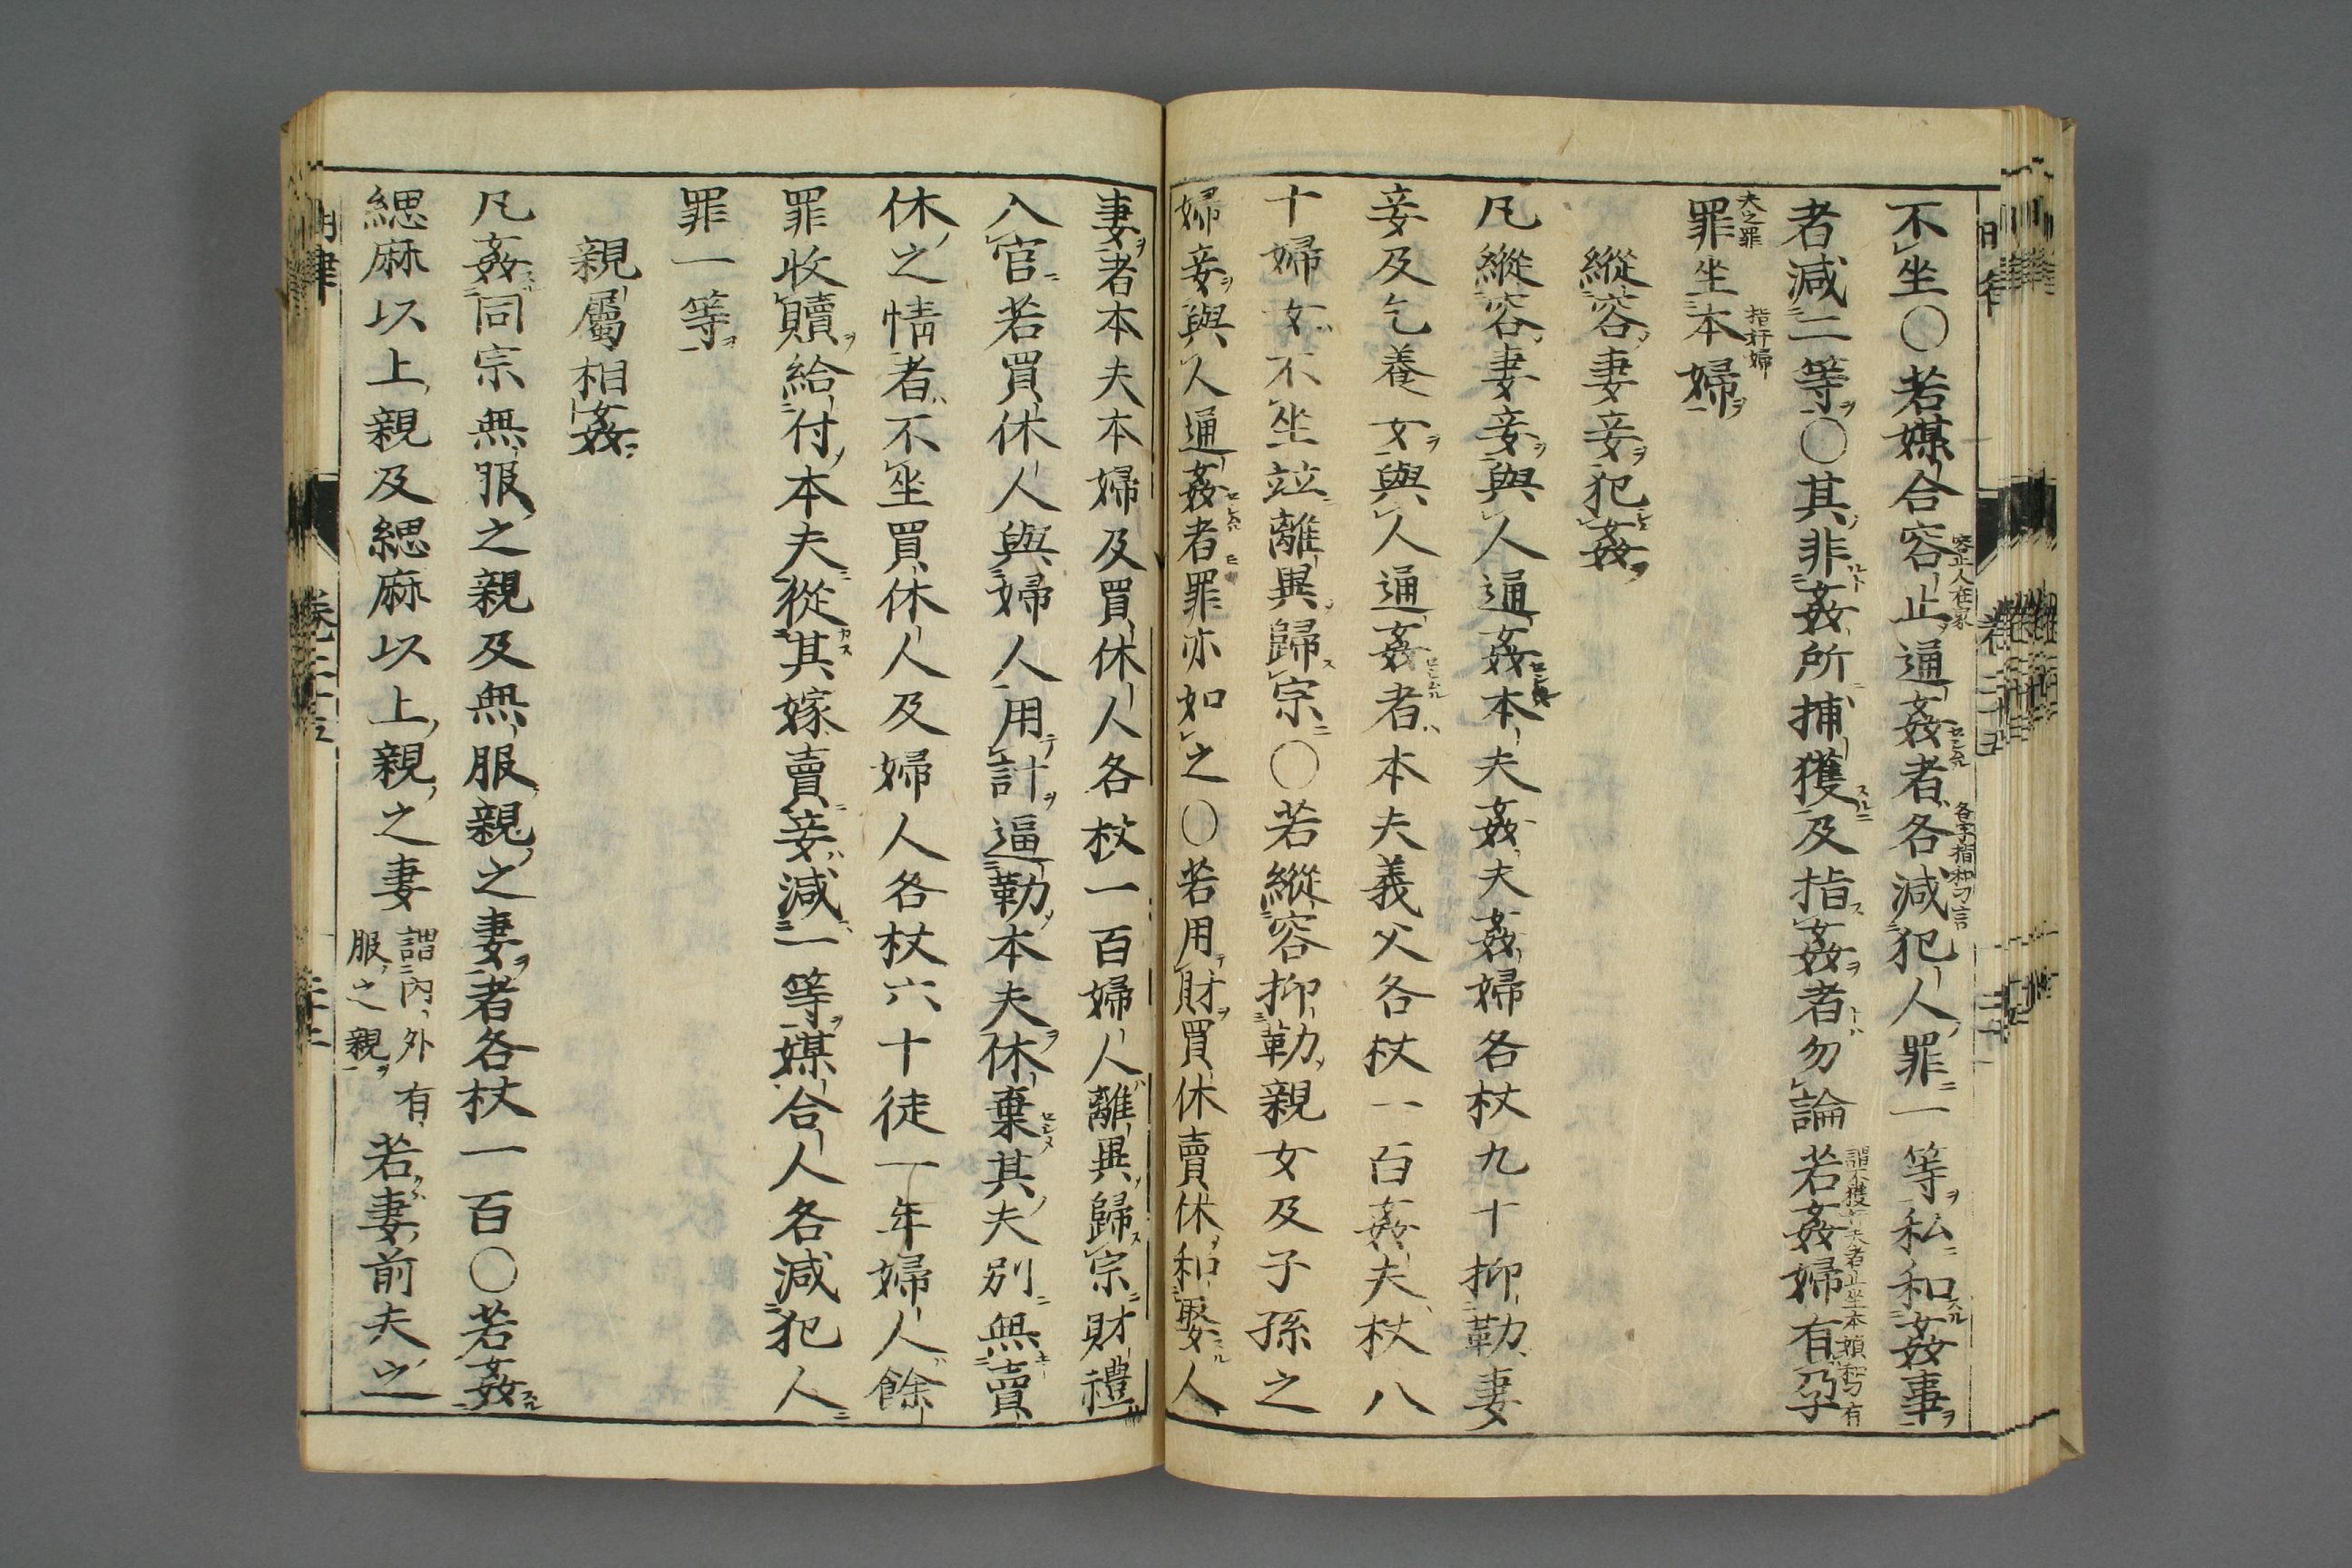 不坐〇若媒合容止通姦者各減犯人罪一等私和姦事
者減二等〇其非姦所捕獲及指姦者勿論若姦婦有孕
罪坐本婦
縱容妻妾犯姦
凡縱容妻妾與人通姦本夫姦夫姦婦各杖九十抑勒妻
妾及乞養女與人通姦者本夫義父各杖一百姦夫杖八
十婦女不坐竝離異歸宗〇若縱容抑勒親女及子孫之
婦妾與人通姦者罪亦如之〇若用財買休賣休和娶人
妻者本夫本婦及買休人各杖一百婦人離異歸宗財禮
入官若買休人與婦人用計逼勒本夫休棄其夫別無賣
休之情者不坐買休人及婦人各杖六十徒一年婦人餘
罪收贖給付本夫從其嫁賣妾減一等媒合人各減犯人
罪一等
親屬相姦
凡姦同宗無服之親及無服親之妻者各杖一百〇若姦
緦麻以上親及緦麻以上親之妻謂內外有服之親若妻前夫之